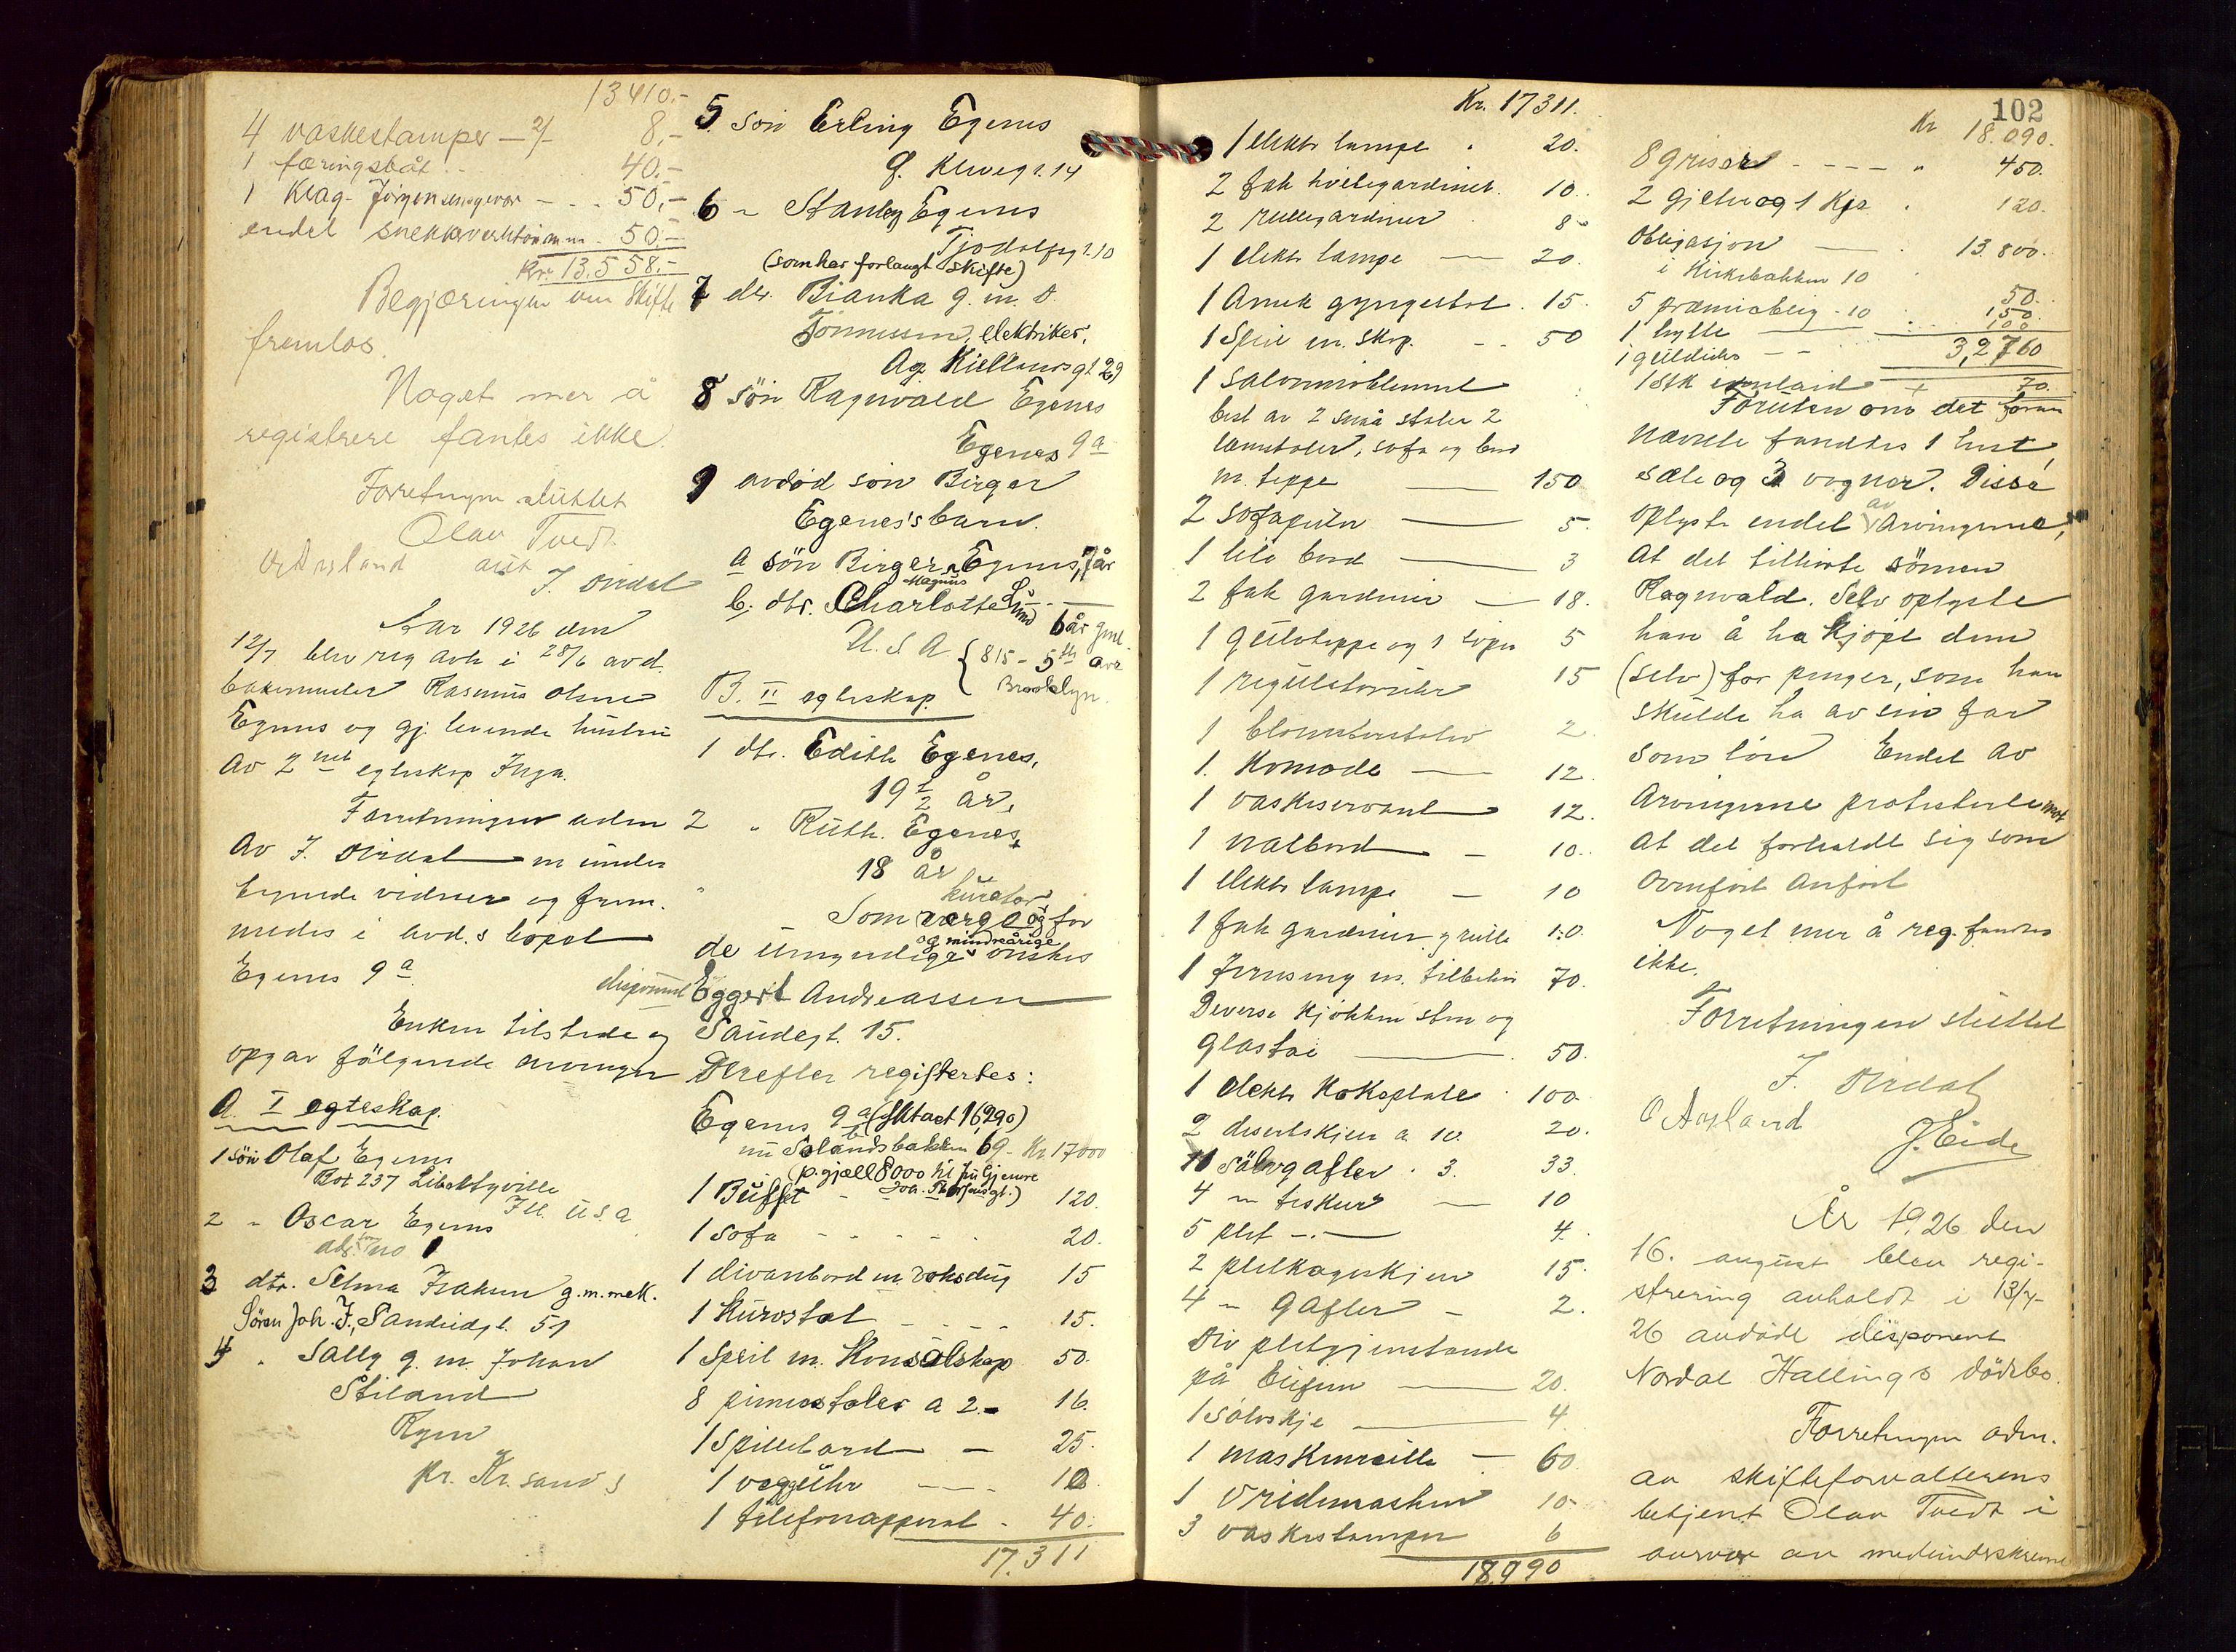 13410.-
4 vaskestamper - 2/- 8.-
1 færingsbåt . . 40.-
1 Krag-Jörgensensgevær - . . 50.-
endel snekkerverktöi m.m. 50.-
Kr. 13.558.-
Begjæringen om Skifte
fremlås.
Noget mer å
registrere fantes ikke.
Forretningen sluttet
Olav Tvedt
O Aasland aut
J. Oirdal
Aar 1926 den
12/7 blev reg avh i 28/6 avd.
Rasmus Olsen
Egenes og gj. levende hustru
av 2net egteskap Inga.
Forretningen adm
av J. Oirdal m under
tegnede vidner og frem.
medes i avd.s bopæl
Egenes 9a
Enken tilstede og
opgav fölgende arvinger
A. I egteskap.
1 sön Olaf Egenes
Rot 237 Libertyville
Ill. U.S.A.
2 " Oscar Egenes
adr. som no 1
3 dtr. Selma Isaksen g.m. mek.
Sören Joh. I., Sandeidgt. 51
4 " Sally g. m. Johan
Stiland
Rygen
pr. Kr.sand S
5 sön Erling Egenes
6 " Stanley Egenes
Tjodolfsgt. 10
(som har forlangt skifte)
7 dtr. Bianka g. m. O.
Tönnessen, elektriker,
Ag. Kiellandsgt 29
8 sön Ragnvald Egenes
Egenes 9a
9 avdöd sön Birger
Egenes's barn.
a sön Birger Magnus Egenes, 7 år
b. dtr. Charlotte Lund
6 år gml.
U.S.A. { 815 - 5th ave
Brooklyn.
B. II egteskap.
1 dtr. Edith Egenes,
19 1/2 år,
2 " Ruth. Egenes,
18 år
kurator
Som verge og for
de umyndige og mindreårige önskes
disponent Eggert Andreassen
Saudegt. 15.
Derefter registertes:
Egenes 9a (skttaxt 16290)
nu Solandsbakken 69 - Kr. 17000
(p.gjæll 8000 kr
1 Buffet - 120.
1 sofa - - - - - 20.
1 divanbord m. voksdug 15
1 Kurvstol - - - - 15.
1 Speil m. Konsolskap 50
8 pinnestoler a 2.- 16.
1 spillebord - 25.
1 væggeuhr - - - 10
1 telefonapperat - 40.
17.311
102
Kr. 17311.
1 elektr lampe " 20.
2 fak hvitegardiner. 10.
2 rullegardiner . 8.
1 elektr lampe - 20.
1 Amrk gyngestol . 15.
1 Speil m. skap. - - 50
1 salonmöblement
best av 2 små stoler 2
lænstoler, sofa og bord
m. teppe - 150
2 sofaputer - 5.
1 lite bord - 3
2 fak gardiner - 18.
1 gulvteppe og 1 löper 5
1 regulatoruhr 15
1 blomsterstativ 2.
1. Komode - 12.
1 vaskeservant 12.
1 natbord - 10.
1 elektr lampe - 10
1 fak gardiner g rulle 10.
1 Jernseng m. tilbehör 70.
Diverse Kjökken sten og
glastöi - 50.
1 elektr Kokeplate . 100.
2 desertskjeer a 10. 20.
11 sölvgafler . 3. 33.
4 " teskeer - 10
5 plet -"- 4.
2 pletkageskjeer 15.
4 " gafler - 2.
Div pletgjenstande
på buffeen - 20.
1 sölvskje - 4.
1 maskinrulle - 60.
1 vridemaskin 10-
3 vaskestamper 6
18,090
Kr 18.090.
8 griser - - - - " 450.
2 gjeter og 1 Kje . 120.
Obligasjon - . 13.800.
i Kirkebakken 10 "
5 præmieoblig. - 10 . 50.
1 hytte - . 150.
1 gulduhr - - 100
3,2760
1 Stk + 70.
Foruten om det foran
nævnte fandtes 1 hest,
sæle og 3 vogner. Disse
oplyste endel av Arvingerne,
at det tillhörte sönnen
Ragnvald. Selv oplyste
han å ha kjöpt dem
(selv) for penger, som han
skulde ha av sin far
som lön Endel av
Arvingerne protesterte mot
at det forholdt sig som
ovenfört anfört
Noget mer å reg. fandtes
ikke.
Forretningen sluttet
J. Oirdal
O Aasland
J. Eide
År 1926 den
16. august blev regi-
strering avholdt i 13/7-
26 avdöde disponent
Nordal Hallings dödsbo.
Forretningen adm.
av skifteforvalterens
betjent Olav Tvedt i
nærvær av medundskrevne